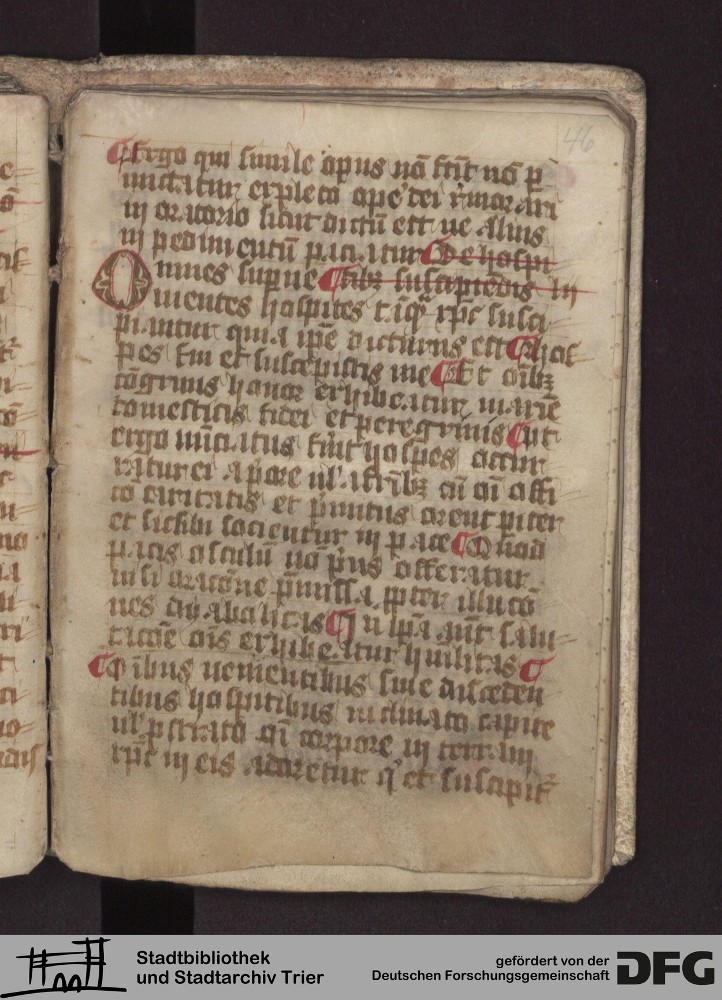 46
Ergo qui simile opus nō facit nō p̄
mittatur expleto ope dei r̄morari
in oratorio sicut dictū est ne alius
inpedimentū paciatur De hospi
Omnes superue tibꝫ suscipiēdis lii
nientes hospites tāqͣ xp̄c susci
piantur quia ip̄e dicturus est hos
pes fui et suscepistis me Et oībꝫ
cōgruus honor exhibeatur maxīe
domesticis fidei et peregrinis Vt
ergo nūciatus fūit hospes occur
ratur ei a p̄ore ul' a fr̄ibꝫ cū oī offi
cio caritatis et p̄mitus orent pͥter
et sic sibi socientur in pace Quod
pacis osculū nō p̄us offeratur
nisi oracōne p̄missa ppter illucō
nes dyabolicas In ip̄a aūt salu
tacōe oīs exhibeatur hūilitas
Oībus uenientibus siue disceden
tibus hospitibus inclinato capite
ul' pstrato oī corpore in terram
xp̄c in eis adoretur qͥ et suscipitͬ
Stadtbibliothek
und Stadtarchiv Trier
gefördert von der
Deutschen Forschungsgemeinschaft
DFG